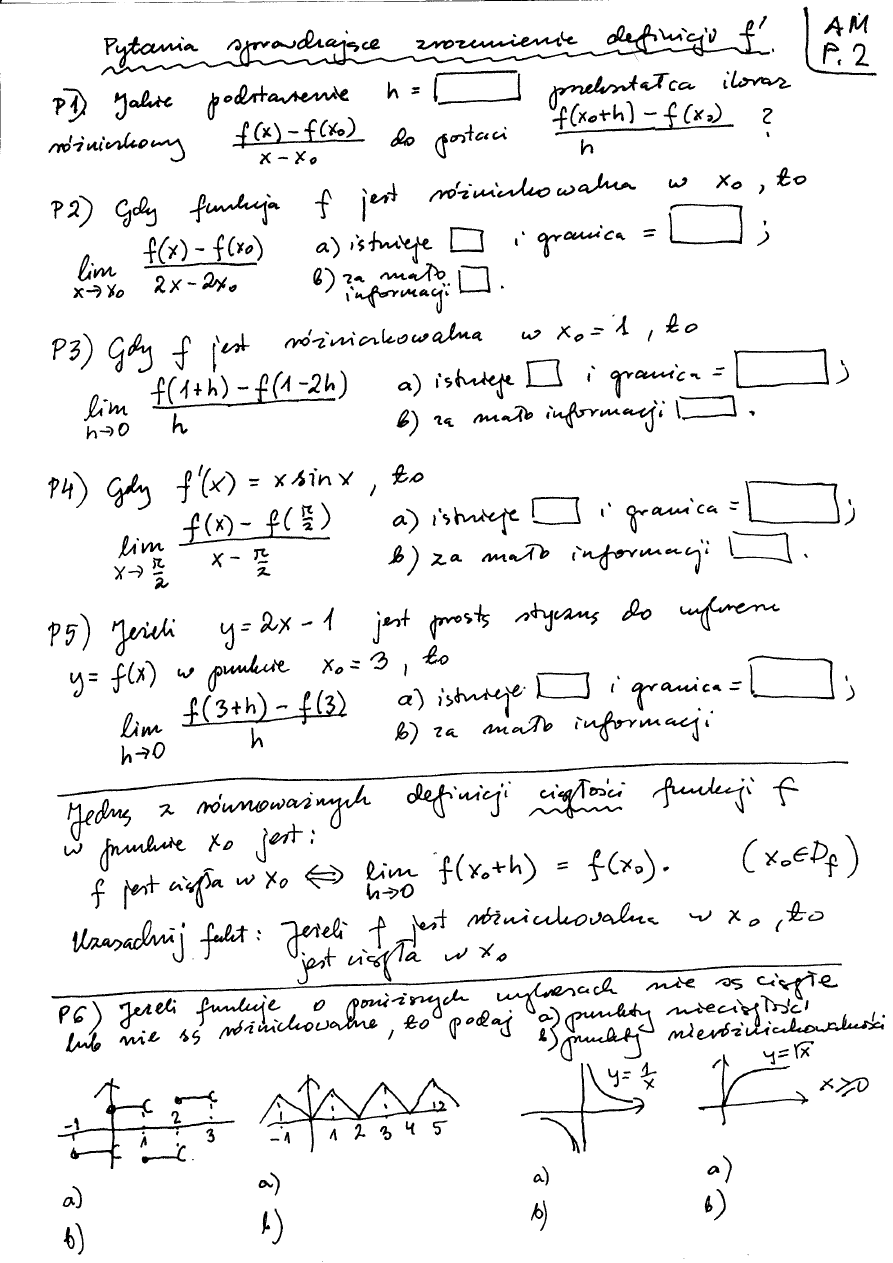 Pytania sprawdzające zrozumienie definicji f'.
AM
P.2
P1) Jakie podstawienie h = przekształca iloraz
różniczkowy \frac{f(x)-f(x_0)}{x-x_0} do postaci \frac{f(x_0+h)-f(x_0)}{h} ?
P2) Gdy funkcja f jest różniczkowalna w x_0, to
\lim_{x→x_0} \frac{f(x)-f(x_0)}{2x-2x_0} a) istnieje i granica = ;
b) za mało informacji .
P3) Gdy f jest różniczkowalna w x_0 = 1, to
\lim_{h→0} \frac{f(1+h)-f(1-2h)}{h} a) istnieje i granica = ;
b) za mało informacji .
P4) Gdy f'(x) = x sin x, to
\lim_{x→\frac{π}{2}} \frac{f(x)-f(\frac{π}{2})}{x-\frac{π}{2}} a) istnieje i granica = ;
b) za mało informacji .
P5) Jeżeli y = 2x - 1 jest prostą styczną do wykresu
y = f(x) w punkcie x_0 = 3, to
\lim_{h→0} \frac{f(3+h)-f(3)}{h} a) istnieje i granica = ;
b) za mało informacji
Jedną z równoważnych definicji ciągłości funkcji f
w punkcie x_0 jest:
f jest ciągła w x_0 ⇔ \lim_{h→0} f(x_0+h) = f(x_0). (x_0 ∈ D_f)
Uzasadnij fakt: Jeżeli f jest różniczkowalna w x_0, to
jest ciągła w x_0
P6) Jeżeli funkcje o poniższych wykresach nie są ciągłe
lub nie są różniczkowalne, to podaj a) punkty nieciągłości
b) punkty nieróżniczkowalności
-1 1 2 3
-1 1 2 3 4 5
y = \frac{1}{x}
y = √x
x ≥ 0
a) a) a) a)
b) b) b) b)